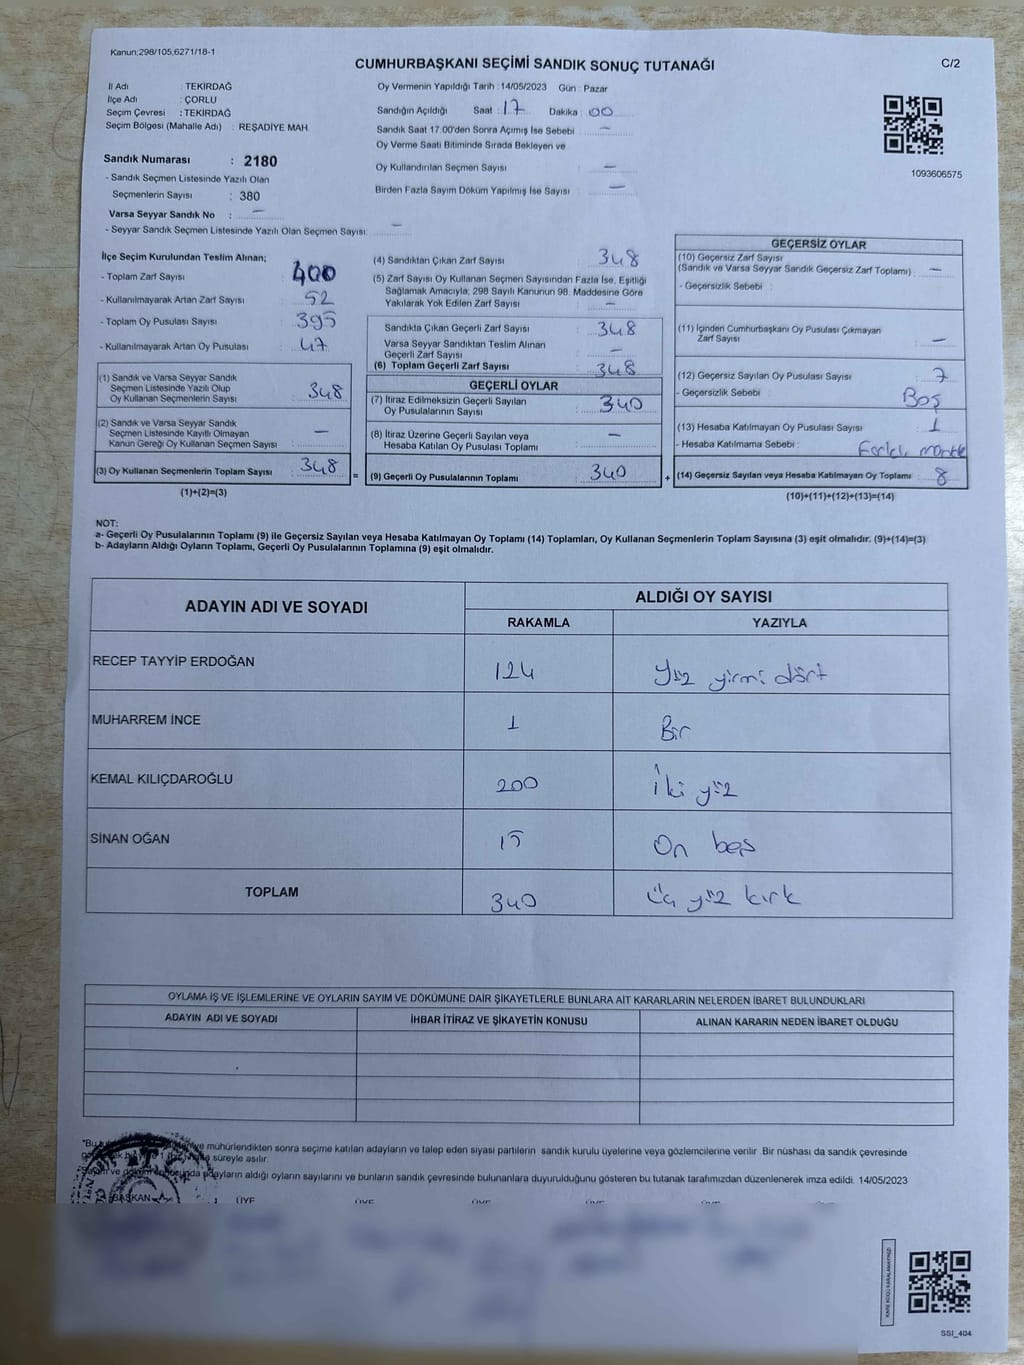 Kanun;298/105,6271/18-1
CUMHURBAŞKANI SEÇİMİ SANDIK SONUÇ TUTANAĞI
C/2
İl Adı : TEKİRDAĞ
İlçe Adı : ÇORLU
Seçim Çevresi : TEKİRDAĞ
Seçim Bölgesi (Mahalle Adı) : REŞADİYE MAH.
Oy Vermenin Yapıldığı Tarih : 14/05/2023 Gün : Pazar
Sandığın Açıldığı Saat : 17 Dakika : 00
Sandık Saat 17.00'den Sonra Açımış İse Sebebi : —
Oy Verme Saati Bitiminde Sırada Bekleyen ve
Oy Kullandırılan Seçmen Sayısı : —
Birden Fazla Sayım Döküm Yapılmış İse Sayısı : —
1093606575
Sandık Numarası : 2180
- Sandık Seçmen Listesinde Yazılı Olan
Seçmenlerin Sayısı : 380
Varsa Seyyar Sandık No : —
- Seyyar Sandık Seçmen Listesinde Yazılı Olan Seçmen Sayısı: —
İlçe Seçim Kurulundan Teslim Alınan;
- Toplam Zarf Sayısı : 400
- Kullanılmayarak Artan Zarf Sayısı : 52
- Toplam Oy Pusulası Sayısı : 395
- Kullanılmayarak Artan Oy Pusulası : 47
(1) Sandık ve Varsa Seyyar Sandık
Seçmen Listesinde Yazılı Olup
Oy Kullanan Seçmenlerin Sayısı : 348
(2) Sandık ve Varsa Seyyar Sandık
Seçmen Listesinde Kayıtlı Olmayan
Kanun Gereği Oy Kullanan Seçmen Sayısı : —
(3) Oy Kullanan Seçmenlerin Toplam Sayısı : 348
(1)+(2)=(3)
(4) Sandıktan Çıkan Zarf Sayısı : 348
(5) Zarf Sayısı Oy Kullanan Seçmen Sayısından Fazla İse, Eşitliği
Sağlamak Amacıyla, 298 Sayılı Kanunun 98. Maddesine Göre
Yakılarak Yok Edilen Zarf Sayısı : —
Sandıkta Çıkan Geçerli Zarf Sayısı : 348
Varsa Seyyar Sandıktan Teslim Alınan
Geçerli Zarf Sayısı : —
(6) Toplam Geçerli Zarf Sayısı : 348
GEÇERLİ OYLAR
(7) İtiraz Edilmeksizin Geçerli Sayılan
Oy Pusulalarının Sayısı : 340
(8) İtiraz Üzerine Geçerli Sayılan veya
Hesaba Katılan Oy Pusulası Toplamı : —
= (9) Geçerli Oy Pusulalarının Toplamı : 340
GEÇERSİZ OYLAR
(10) Geçersiz Zarf Sayısı
(Sandık ve Varsa Seyyar Sandık Geçersiz Zarf Toplamı) : —
- Geçersizlik Sebebi :
(11) İçinden Cumhurbaşkanı Oy Pusulası Çıkmayan
Zarf Sayısı : —
(12) Geçersiz Sayılan Oy Pusulası Sayısı : 7
- Geçersizlik Sebebi : Boş
(13) Hesaba Katılmayan Oy Pusulası Sayısı : 1
- Hesaba Katılmama Sebebi :
+ (14) Geçersiz Sayılan veya Hesaba Katılmayan Oy Toplamı : 8
(10)+(11)+(12)+(13)=(14)
NOT:
a- Geçerli Oy Pusulalarının Toplamı (9) ile Geçersiz Sayılan veya Hesaba Katılmayan Oy Toplamı (14) Toplamları, Oy Kullanan Seçmenlerin Toplam Sayısına (3) eşit olmalıdır. (9)+(14)=(3)
b- Adayların Aldığı Oyların Toplamı, Geçerli Oy Pusulalarının Toplamına (9) eşit olmalıdır.
ADAYIN ADI VE SOYADI
ALDIĞI OY SAYISI
RAKAMLA YAZIYLA
RECEP TAYYİP ERDOĞAN 124 Yüz yirmi dört
MUHARREM İNCE 1 Bir
KEMAL KILIÇDAROĞLU 200 İki yüz
SİNAN OĞAN 15 On beş
TOPLAM 340 Üç yüz kırk
OYLAMA İŞ VE İŞLEMLERİNE VE OYLARIN SAYIM VE DÖKÜMÜNE DAİR ŞİKAYETLERLE BUNLARA AİT KARARLARIN NELERDEN İBARET BULUNDUKLARI
ADAYIN ADI VE SOYADI İHBAR İTİRAZ VE ŞİKAYETİN KONUSU ALINAN KARARIN NEDEN İBARET OLDUĞU
mühürlendikten sonra seçime katılan adayların ve talep eden siyasi partilerin sandık kurulu üyelerine veya gözlemcilerine verilir. Bir nüshası da sandık çevresinde
süreyle asılır.
adayların aldığı oyların sayılarını ve bunların sandık çevresinde bulunanlara duyurulduğunu gösteren bu tutanak tarafımızdan düzenlenerek imza edildi. 14/05/2023
BAŞKAN ÜYE ÜYE ÜYE ÜYE ÜYE ÜYE
SSI_404